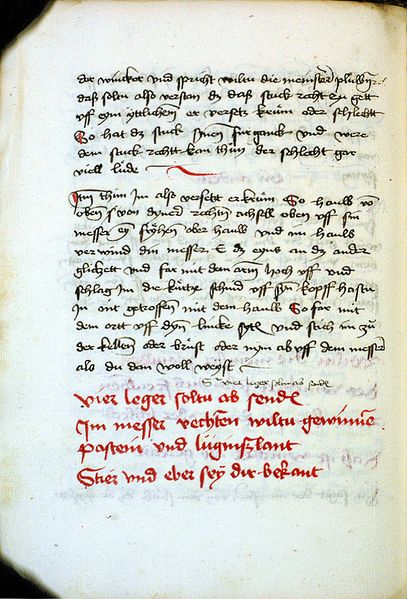 der wincker vnd spricht wiltu die meinster pluwen
daß soltu also verstan dz daß stuck recht zu gett
vff eym yttlichen er versetz krum oder schlecht
So hat dz stuck synen fur ganck vnd were
dem stuck recht kan thun der schlecht gar
viell lude
Itm thun Im also versett er krum So hauw vo
oben von dyner rechten achsell oben vff sin
messer ey fryhen ober hauw vnd im hauw
ver wind din messer E dz eyns an dz ander
glichett vnd far mit dem arm hoch vff vnd
schlag Im die kurtze schnid vff syn kopff hastu
In getroffen mit dem hauw So far mit
dem ortt vff dyn lincke syt vnd stich im zu
der kellen oder brust oder nym ab vff dem messer
als du dan woll weyst
vier leger soltu ab send
vier leger soltu ab send
Im messer vechten wiltu gewinnen
Pastein vnd luginßlant
Stier vnd eber sey dir bekant